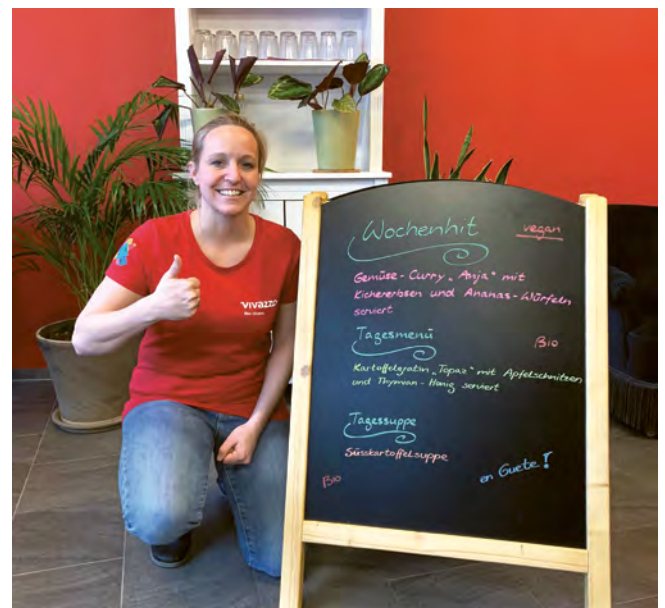 vivazzo
Wochenhit vegan
Gemüse-Curry „Anja“ mit
Kichererbsen und Ananas-Würfeln
serviert
Tagesmenü Bio
Kartoffelgratin „Topaz“ mit Apfelschnitzen
und Thymian-Honig serviert
Tagessuppe
Süsskartoffelsuppe
Bio
en Guete!